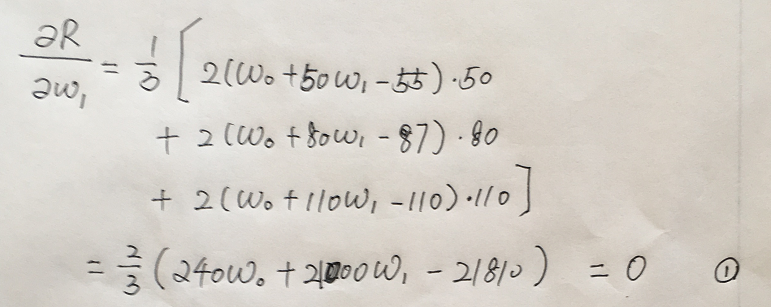 ∂R/∂w₁ = 1/3 [ 2(w₀+50w₁-55)·50
+ 2(w₀+80w₁-87)·80
+ 2(w₀+110w₁-110)·110]
= 2/3 (240w₀+21000w₁-21810) = 0 ①